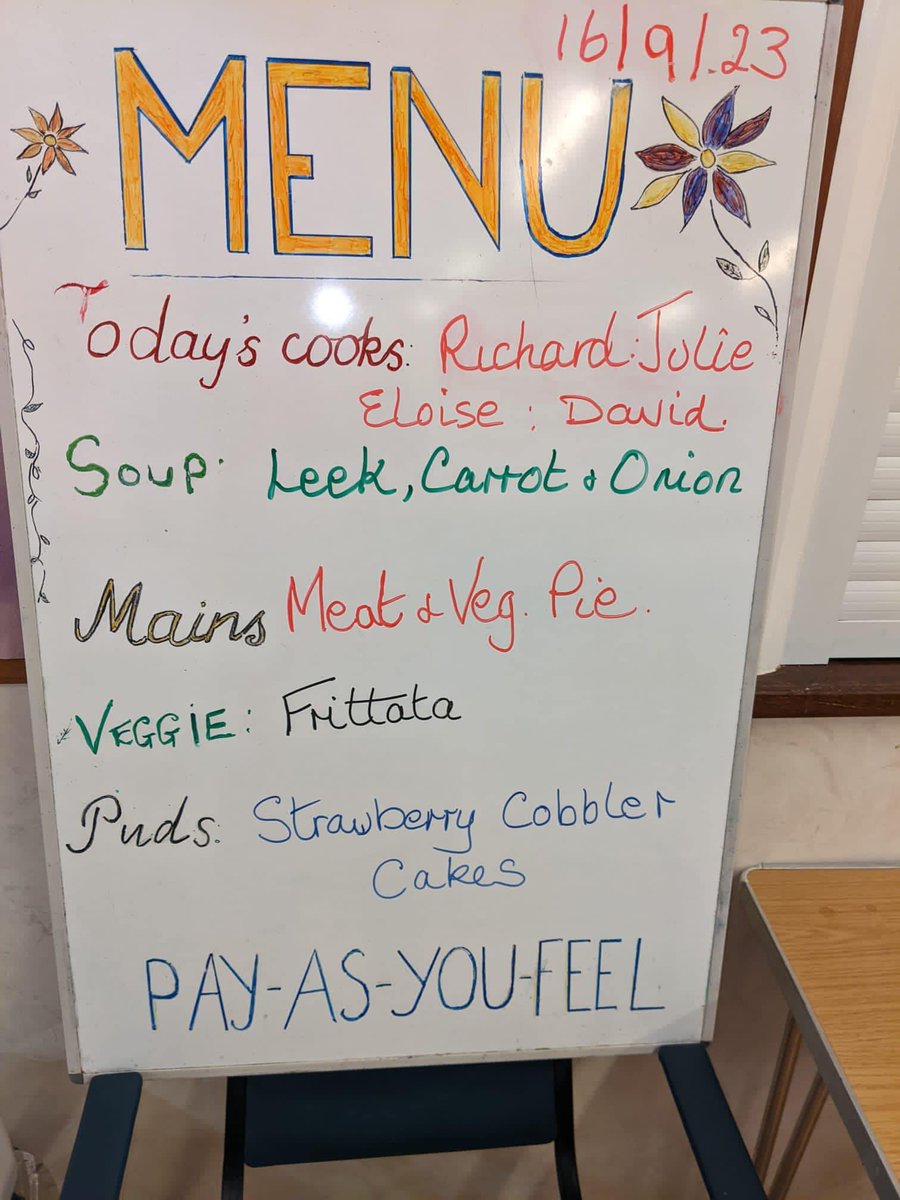 16/9/.23
MENU
Today's cooks: Richard: Julie
Eloise : David.
Soup: Leek, Carrot & Onion
Mains Meat & Veg. Pie.
VEGGiE: Frittata
Puds: Strawberry Cobbler
Cakes
PAY-AS-YOU-FEEL